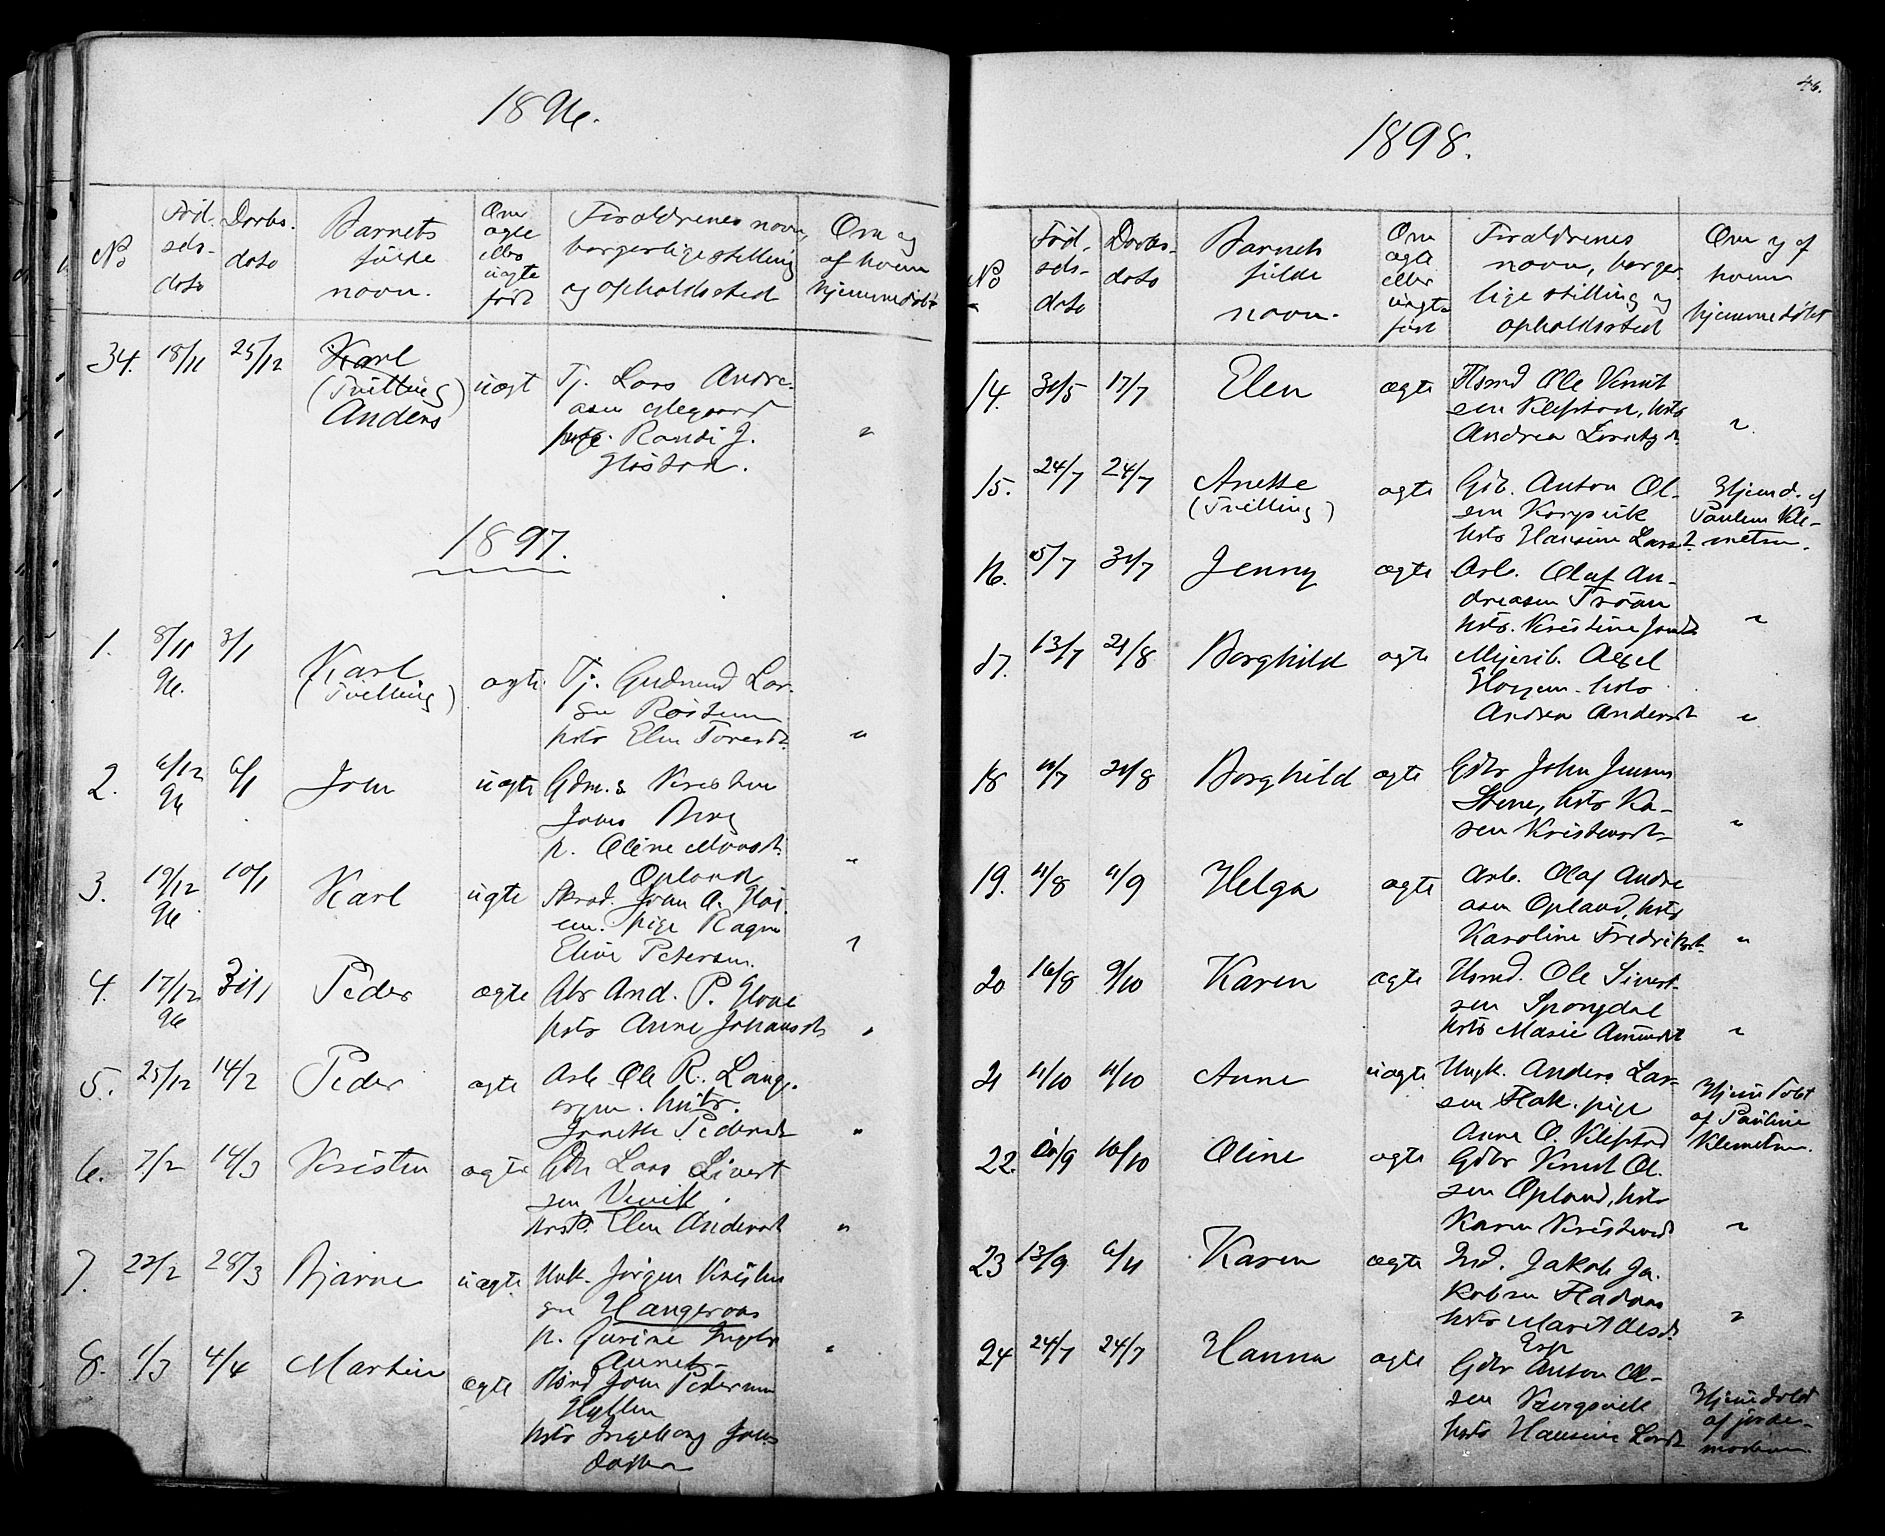 1896.
No
Fød-
sels-
dato
Daabs-
dato
Barnets
fulde
navn.
Om
ægte
eller
uægte
født
Forældrenes navn,
borgerlige stilling
og opholdssted
Om og
af hvem
hjemmedøbt
34.
18/11
25/12
Karl
(Tvilling)
Anders
uægt
Tj. Lars Andre-
asen
pige. Randi J.
1897.
1.
8/11
96.
3/1
Karl
(Tvilling)
ægte
Tj. Gudmund Lar-
sen
hstr Elen Toresdt.
"
2.
6/12
96
6/1
John
uægte
Gdm.s. Kristen
Jons Berg
p. Oline
Opland
"
3.
19/12
96.
10/1
Karl
uægte
Skræd. John A.
pige Ragna
Eline Petersen.
"
4.
17/12
96
31/1
Peder
ægte
Abr And. P.
hstr Anne Johansdt
"
5.
25/12
14/2
Peder
ægte
Arb Ole R.
hustr.
Pedersdt
"
6.
2/2
14/3
Kristen
ægte
Gdbr Lars Sivert
sen Venik
hstr. Elen Andersdt
"
7.
22/2
28/3
Bjarne
uægte
Unk. Jørgen Kristen
sen Hangeraas
p. Gurine Ingebr
"
8.
1/3
4/4
Martin
ægte
Hsmd John Pedersen
hstr Ingeborg Johns
datter
46.
1898.
No
Fød-
sels-
dato
Daabs-
dato
Barnets
fulde
navn.
Om
ægte
eller
uægte
født
Forældrenes
navn, borger
lige stilling og
opholdssted
Om og af
hvem
hjemmedøbt
14.
31/5
17/7
Elen
ægte
Hsmd Ole Knut
sen Klefstad, hstr
Andrea
"
15.
24/7
24/7
Anette
(Tvilling)
ægte
Gdb. Anton Ol-
sen Korsvik
hstr Hansine Larsd.
Hjemd. af
Paulin Kle-
metsen.
16.
5/7
31/7
Jenny
ægte
Arb. Olaf An-
dreasen Trøan
hstr. Kristine Jonsdt
"
17.
13/7
21/8
Borghild
ægte
Mejerib. Axel
hstr
Andrea Andersdt
"
18
11/7
21/8
Borghild
ægte
Gdbr John Jensen
Stene, hstr Ka-
ren Kristensdt
"
19.
11/8
11/9
Helga
ægte
Arb. Olaf Andre
asen Opland, hstr
Karoline Fredriksdt.
"
20
16/8
9/10
Karen
ægte
Hsmd. Ole Sivert-
sen Spongdal
hstr Marie Amundsdt
"
21
11/10
11/10
Anne
uægte
Ungk. Anders Lar-
sen Flak. pige
Anne O. Klefstad
Hjemdøbt
af Pauline
Klemetsen.
22.
16/10
Oline
ægte
Gdbr Knut Ol-
sen Opland, hstr
Karen Kristensd
"
23
13/9
6/11
Karen
ægte
Ind. Jakob Ja-
kobsen Fladaas
hstr Marit Olsdt.
Esp
"
24
24/7
24/7
Hanna
ægte
Gdbr Anton Ol-
sen
hstr Hansine Larsdt
Hjemdøbt
af jorde-
moderen.